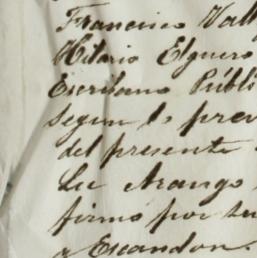 Francisco Vall
Hilario Elguero
Escribano Públi
segun lo prev
del presente
Lic Arango
firmo por su
a Escandon.